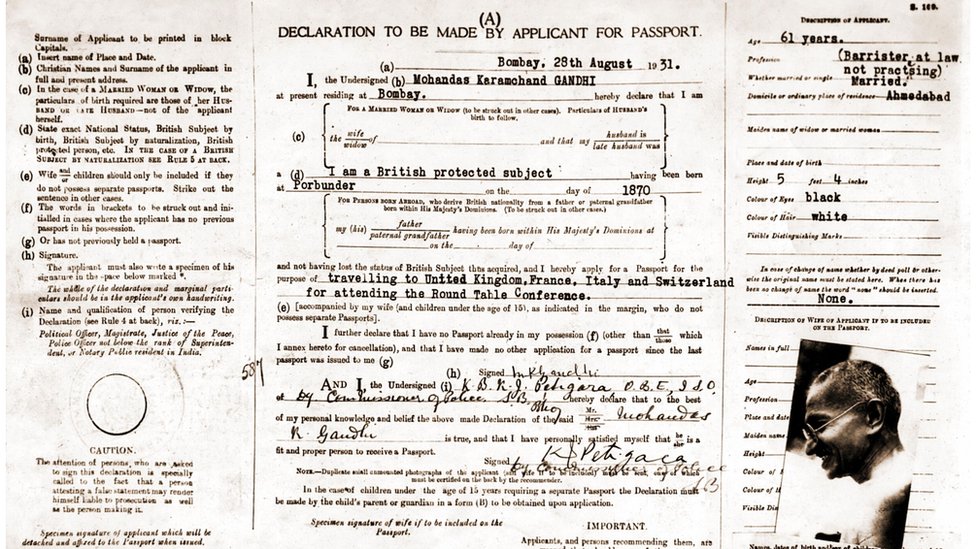 S. 169.
Surname of Applicant to be printed in block
Capitals.
(a) Insert name of Place and Date.
(b) Christian Names and Surname of the applicant in
full and present address.
(c) In the case of a MARRIED WOMAN OR WIDOW, the
particulars of birth required are those of her HUS-
BAND OR LATE HUSBAND—not of the applicant
herself.
(d) State exact National Status, British Subject by
birth, British Subject by naturalization, British
protected person, etc. IN THE CASE OF A BRITISH
SUBJECT BY NATURALIZATION SEE RULE 5 AT BACK.
(e) Wife and/or children should only be included if they
do not possess separate passports. Strike out the
sentence in other cases.
(f) The words in brackets to be struck out and ini-
tialled in cases where the applicant has no previous
passport in his possession.
(g) Or has not previously held a passport.
(h) Signature.
The applicant must also write a specimen of his
signature in the space below marked *.
The whole of the declaration and marginal parti-
culars should be in the applicant's own handwriting.
(i) Name and qualification of person verifying the
Declaration (see Rule 4 at back), viz. :—
Political Officer, Magistrate, Justice of the Peace,
Police Officer not below the rank of Superinten-
dent, or Notary Public resident in India.
587
CAUTION.
The attention of persons, who are asked
to sign this declaration is specially
called to the fact that a person
attesting a false statement may render
himself liable to prosecution as well
as the person making it.
Specimen signature of applicant which will be
detached and affixed to the Passport when issued.
(A)
DECLARATION TO BE MADE BY APPLICANT FOR PASSPORT.
(a) Bombay, 28th August 1931.
I, the Undersigned (b) Mohandas Karamchand GANDHI
at present residing at Bombay. hereby declare that I am
FOR A MARRIED WOMAN OR WIDOW (to be struck out in other cases). Particulars of HUSBAND'S
birth to follow.
(c) the wife/widow of and that my husband is/late husband was
a (d) I am a British protected subject having been born
at Porbunder on the day of 1870
FOR PERSONS BORN ABROAD, who derive British nationality from a father or paternal grandfather
born within His Majesty's Dominions. (To be struck out in other cases.)
my (his) father/paternal grandfather having been born within His Majesty's Dominions at
on the day of
and not having lost the status of British Subject thus acquired, and I hereby apply for a Passport for the
purpose of travelling to United Kingdom, France, Italy and Switzerland
for attending the Round Table Conference.
(e) [accompanied by my wife (and children under the age of 15), as indicated in the margin, who do not
possess separate Passports].
I further declare that I have no Passport already in my possession (f) (other than that/those which
I annex hereto for cancellation), and that I have made no other application for a passport since the last
passport was issued to me (g)
(h) Signed MKGandhi
AND I, the Undersigned (i) K. B. N. J. Petigara O.B.E, I.S.O.
Dy Commissioner of Police, S.B. hereby declare that to the best
of my personal knowledge and belief the above made Declaration of the said Mr. Mohandas
K. Gandhi is true, and that I have personally satisfied myself that he/she is a
fit and proper person to receive a Passport.
Signed K J Petigara
Dy Commissioner of Police
SB
NOTE.—Duplicate small unmounted photographs of the applicant (and wife if to be included) must be sent, one of which
must be certified on the back by the recommender.
In the case of children under the age of 15 years requiring a separate Passport the Declaration must
be made by the child's parent or guardian in a form (B) to be obtained upon application.
Specimen signature of wife if to be included on the
Passport.
IMPORTANT.
Applicants, and persons recommending them, are
DESCRIPTION OF APPLICANT.
Age 61 years.
Profession (Barrister at law
not practsing)
Whether married or single Married.
Domicile or ordinary place of residence Ahmedabad
Maiden name of widow or married woman
Place and date of birth
Height 5 feet 4 inches
Colour of Eyes black
Colour of Hair white
Visible Distinguishing Marks
In case of change of name whether by deed poll or other-
wise the original name must be stated here. When there has
been no change of name the word "none" should be inserted.
None.
DESCRIPTION OF WIFE OF APPLICANT IF TO BE INCLUDED
ON THE PASSPORT.
Names in full
Age
Profession
Place and date
Maiden name
Height
Colour of
Colour of
Visible Dist
Names, dates of birth